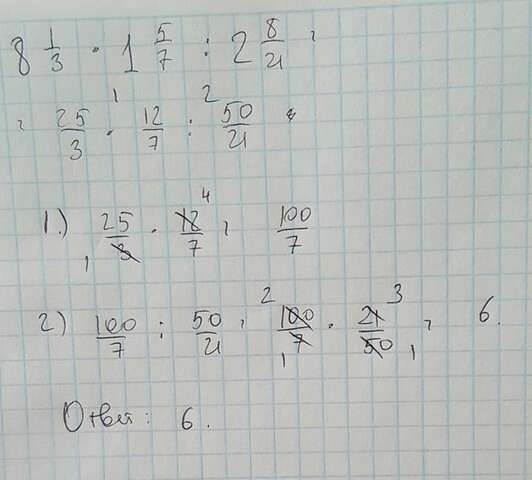 8 1/3 · 1 5/7 : 2 8/21 =
= 25/3 ·¹ 12/7 :² 50/21 =
1.) 25/3 · 12/7 = 100/7
2) 100/7 : 50/21 = 100/7 · 21/50 = 6.
Ответ: 6.